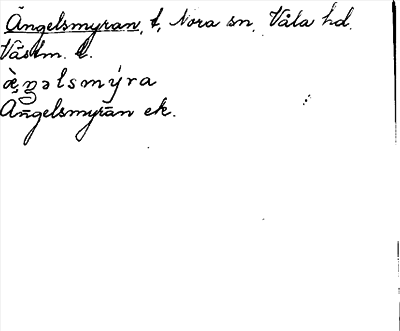 Ängelsmyran, t, Nora sn. Våla hd.
Västm. l.
æ̀ŋəlsmýra
Ängelsmyran ek.